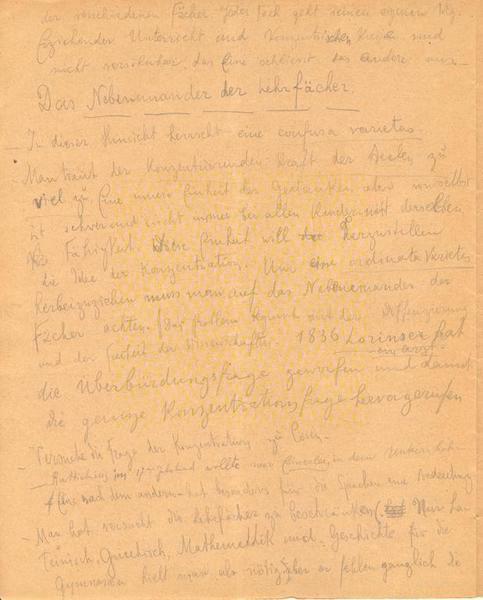 der verschiedenen Fächer. Jedes Fach geht seinen eigenen Weg.
Erziehender Unterricht und konzentrischen Kreise sind
nicht versöhnbar, das Eine schliesst das Andere aus.
Das Nebeneinander der Lehrfächer.
- In dieser Hinsicht herrscht eine confusa varietas.
- Man traut der Konzentrierenden Kraft der Seelen zu
viel zu. Eine innere Einheit der Gedanken aber
ist schwer und nicht immer bei allen Kindern mit derselben
Fähigkeit. Diese Einheit will herzustellen
die Idee der Konzentration. Um eine ordinata varietas
herbeizuziehen muss man auf das Nebeneinander der
Fächer achten. Das Problem mit der Differenzierung
und der Freiheit der Wissenschaften. 1836 Lorinser hat
ein Arzt
die Überbürdungsfrage geworfen und damit
die ganze Konzentrationsfrage hervorgerufen
- Versuche die Frage der Konzentration zu lösen.
- im 17 Jahrhund wollte man in dem
Eine nach dem andern hat besonders für die Sprachen eine Bedeutung
- Man hat versucht die Lehrfächer zu beschränken. Nur La-
teinisch, Griechisch, Mathematik und Geschichte für die
Gymnasien hielt man als nötig, aber es fehlen gänzlich die